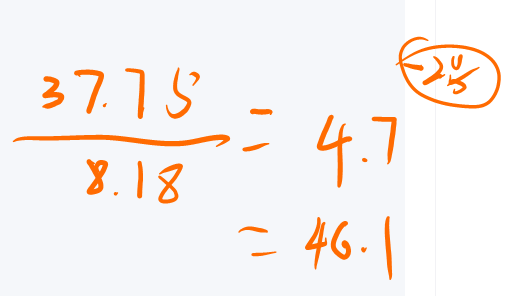 37.75
8.18
= 4.7
= 46.1